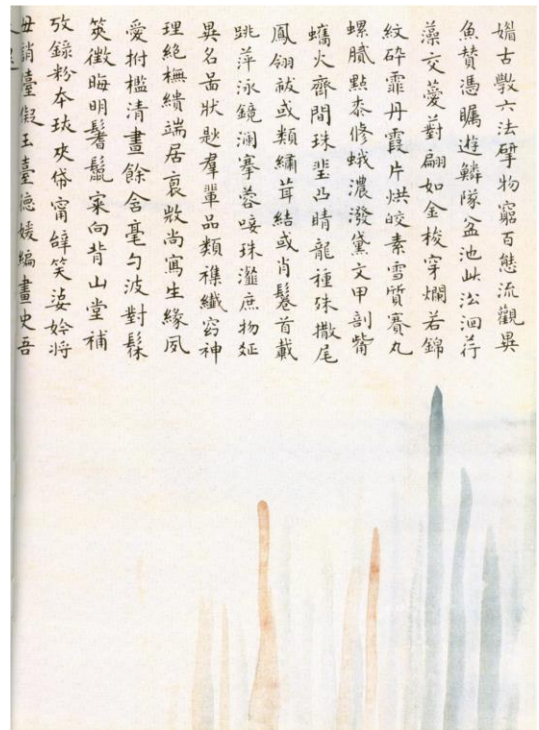 媚古斅六法擘物窮百態流觀異
魚贊憑矚遊鱗隊盆池此沿洄荇
藻交薆薱翩如金梭穿爛若錦
紋碎霏丹霞片烘皎素雪質賽丸
螺膩點桼修蛾濃潑黛文甲剖觜
蠵火齊間珠琲凸睛龍種殊撒尾
鳳翎祓或類繡茸結或肖鬈首載
跳萍泳鏡澜搴蓉唼珠瀣庶物
異名苖狀匙羣輩品類襍纖窮神
理絶橅繢端居裒敝尚寫生緣夙
愛拊檻清晝餘含毫勻波對髹
筴徵晦明鬐鬣宷向背山堂補
攷錄粉夲琺夾帒甯辥笑婆姈將
毋誚臺儗玉臺德媛編畫史吾